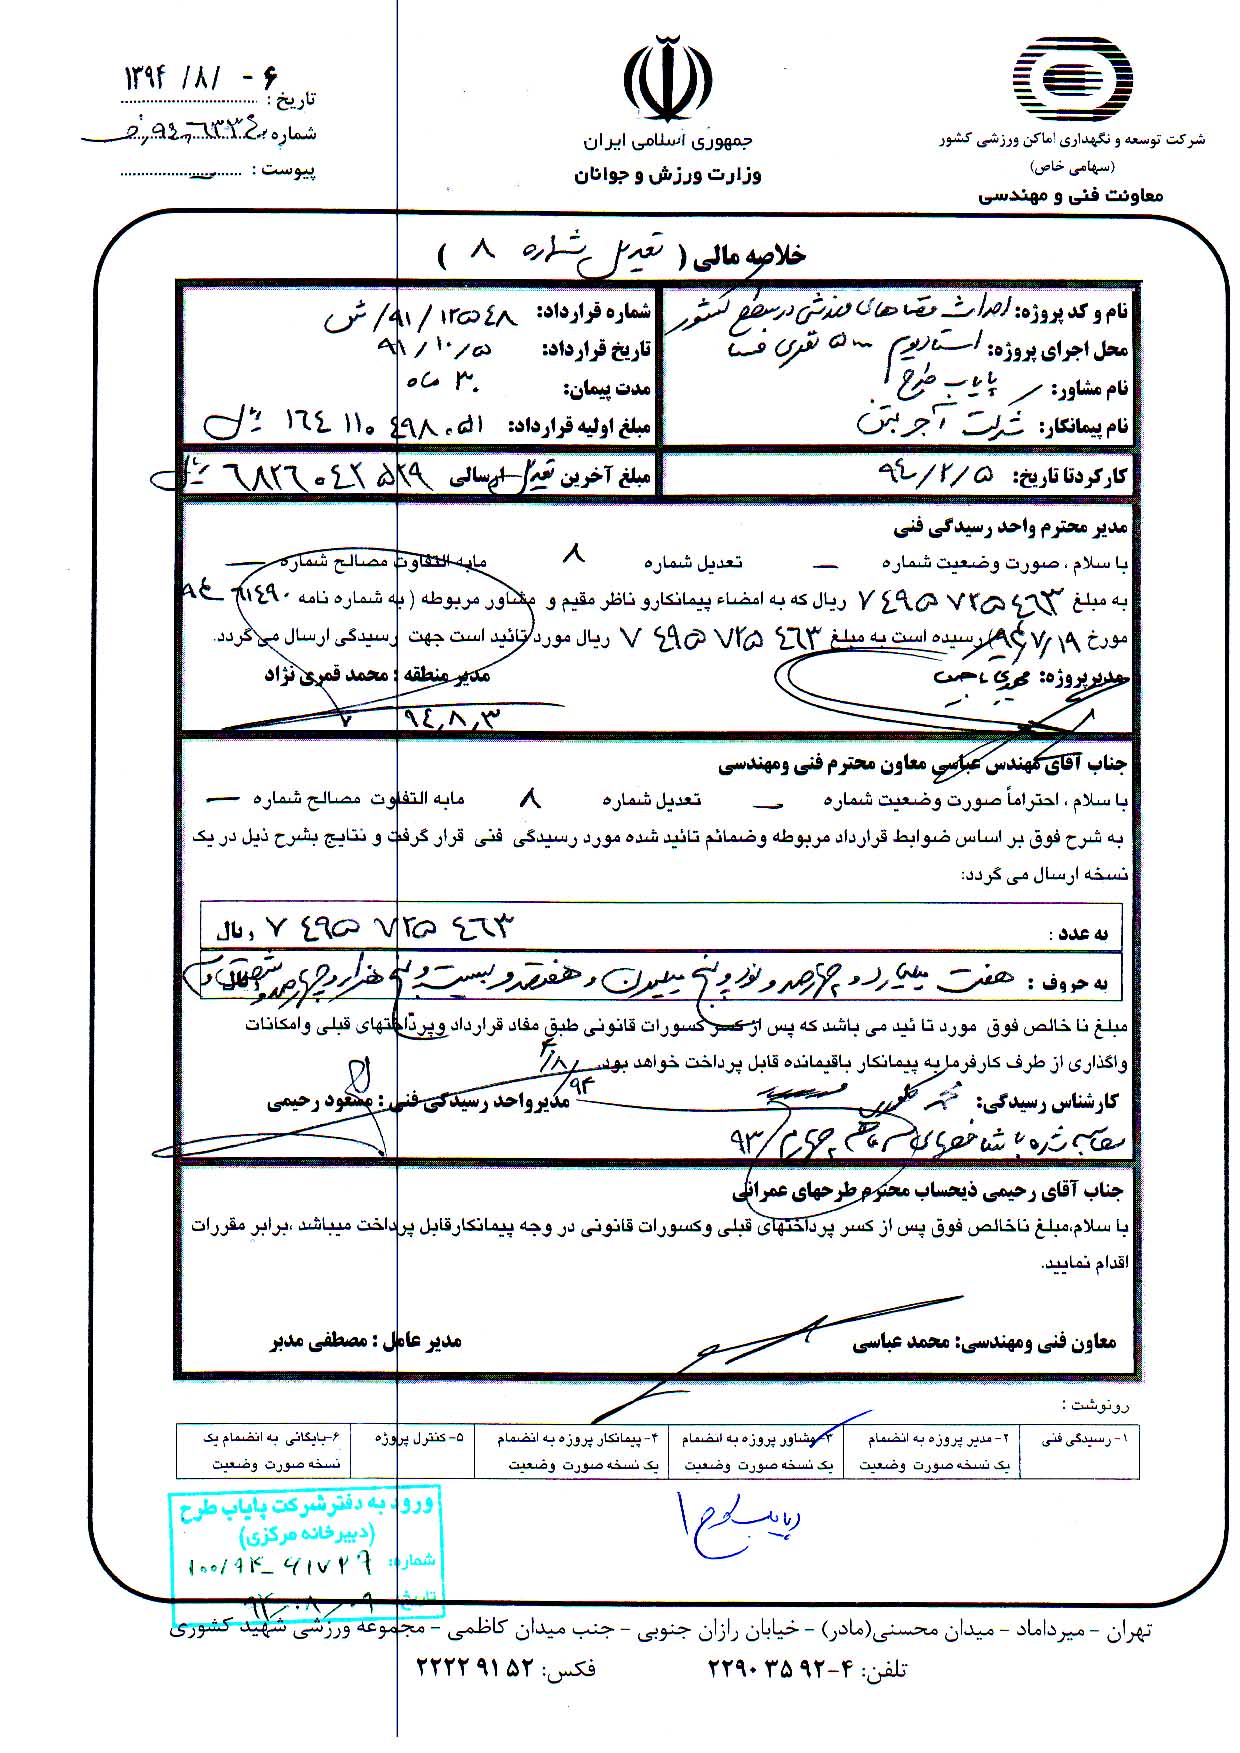 شرکت توسعه و نگهداری اماکن ورزشی کشور
(سهامی خاص)
معاونت فنی و مهندسی
جمهوری اسلامی ایران
وزارت ورزش و جوانان
تاریخ : ۱۳۹۴/۸/-۶
شماره :
پیوست : —
خلاصه مالی ( تعدیل شماره ۸ )
نام و کد پروژه: احداث فضاهای ورزشی در سطح کشور
محل اجرای پروژه: استادیوم ۵۰۰۰ نفری فسا
نام مشاور: پایاب طرح
نام پیمانکار: شرکت آجر بتن
شماره قرارداد: ۹۱/۱۲۵۰۴۸/ش
تاریخ قرارداد: ۹۱/۱۰/۵
مدت پیمان: ۳۰ ماه
مبلغ اولیه قرارداد: ۱۶۴ ۱۱۰ ۴۹۸ ۰۵۱ ریال
کارکرد تا تاریخ: ۹۴/۲/۵
مبلغ آخرین تعدیل ارسالی ۶۸۲۶ ۰۴۲ ۵۲۹ ریال
مدیر محترم واحد رسیدگی فنی
با سلام ، صورت وضعیت شماره — تعدیل شماره ۸ مابه التفاوت مصالح شماره —
به مبلغ ۷ ۴۹۵ ۷۲۵ ۴۶۳ ریال که به امضاء پیمانکار و ناظر مقیم و مشاور مربوطه ( به شماره نامه ۶۱۴۹۰-۹۴
مورخ ۹۴/۷/۱۹) رسیده است به مبلغ ۷ ۴۹۵ ۷۲۵ ۴۶۳ ریال مورد تائید است جهت رسیدگی ارسال می گردد.
مدیرپروژه: مدیر منطقه : محمد قمری نژاد
۹۴,۸,۳
جناب آقای مهندس عباسی معاون محترم فنی ومهندسی
با سلام ، احتراماً صورت وضعیت شماره — تعدیل شماره ۸ مابه التفاوت مصالح شماره —
به شرح فوق بر اساس ضوابط قرارداد مربوطه وضمائم تائید شده مورد رسیدگی فنی قرار گرفت و نتایج بشرح ذیل در یک
نسخه ارسال می گردد:
به عدد : ۷ ۴۹۵ ۷۲۵ ۴۶۳ ریال
به حروف : هفت میلیارد و چهارصد و نود و پنج میلیون و هفتصد و بیست و پنج هزار و چهارصد و شصت و
مبلغ نا خالص فوق مورد تا ئید می باشد که پس از کسر کسورات قانونی طبق مفاد قرارداد وپرداختهای قبلی وامکانات
واگذاری از طرف کارفرما به پیمانکار باقیمانده قابل پرداخت خواهد بود.
۹۴/۸/۴
کارشناس رسیدگی: مدیرواحد رسیدگی فنی : مسعود رحیمی
محاسبه شده با شاخصهای سه ماهه چهارم ۹۳
جناب آقای رحیمی ذیحساب محترم طرحهای عمرانی
با سلام،مبلغ ناخالص فوق پس از کسر پرداختهای قبلی وکسورات قانونی در وجه پیمانکارقابل پرداخت میباشد ،برابر مقررات
اقدام نمایید.
معاون فنی ومهندسی: محمد عباسی مدیر عامل : مصطفی مدبر
رونوشت :
۱- رسیدگی فنی
۲- مدیر پروژه به انضمام
یک نسخه صورت وضعیت
۳- مشاور پروژه به انضمام
یک نسخه صورت وضعیت
۴- پیمانکار پروژه به انضمام
یک نسخه صورت وضعیت
۵- کنترل پروژه
۶-بایگانی به انضمام یک
نسخه صورت وضعیت
پایاب طرح
ورود به دفتر شرکت پایاب طرح
(دبیرخانه مرکزی)
شماره: ۱۰۰/۹۴-۶۱۷۲۹
تاریخ: ۹۴-۰۸-۰۹
تهران - میرداماد - میدان محسنی(مادر) - خیابان رازان جنوبی - جنب میدان کاظمی - مجموعه ورزشی شهید کشوری
تلفن: ۴-۲۲۹۰۳۵۹۲ فکس: ۲۲۲۲۹۱۵۲